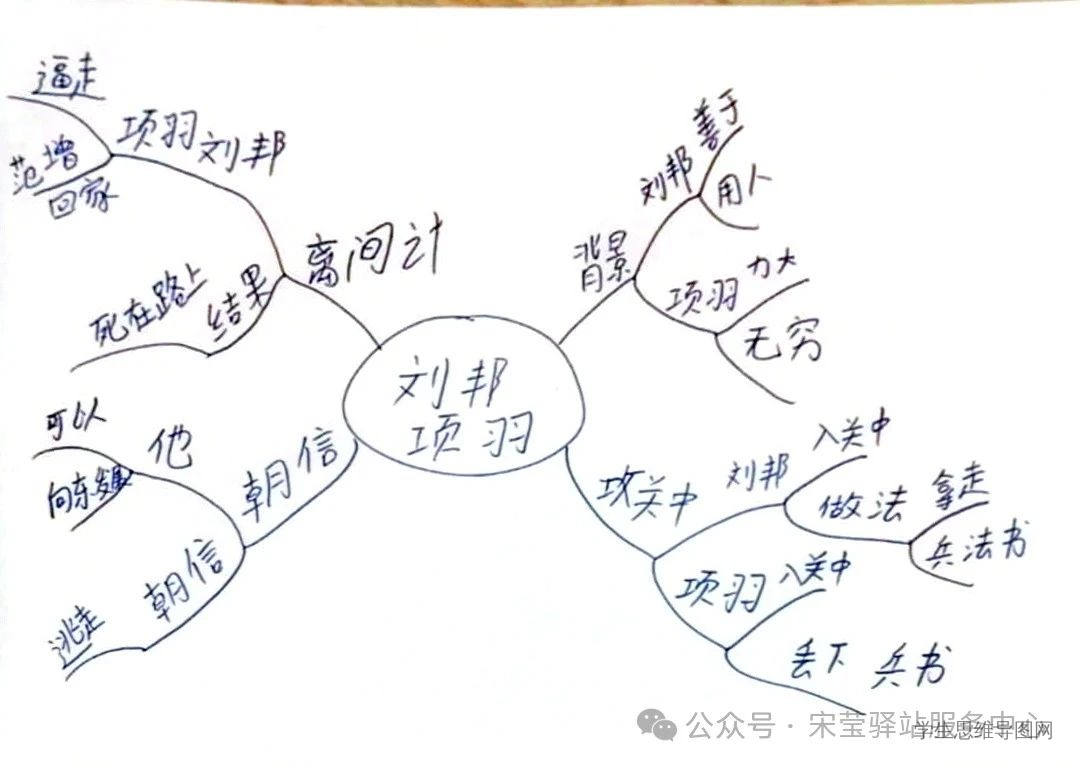 刘邦
项羽
背景
刘邦
善于
用人
项羽
力大
无穷
攻关中
刘邦
入关中
做法
拿走
兵法书
项羽
入关中
丢下 兵书
朝信
他
可以
向东发展
朝信
逃走
离间计
项羽 刘邦
逼走
范增
回家
结果
死在路上
公众号·宋莹驿站服务中心
学生思维导图网